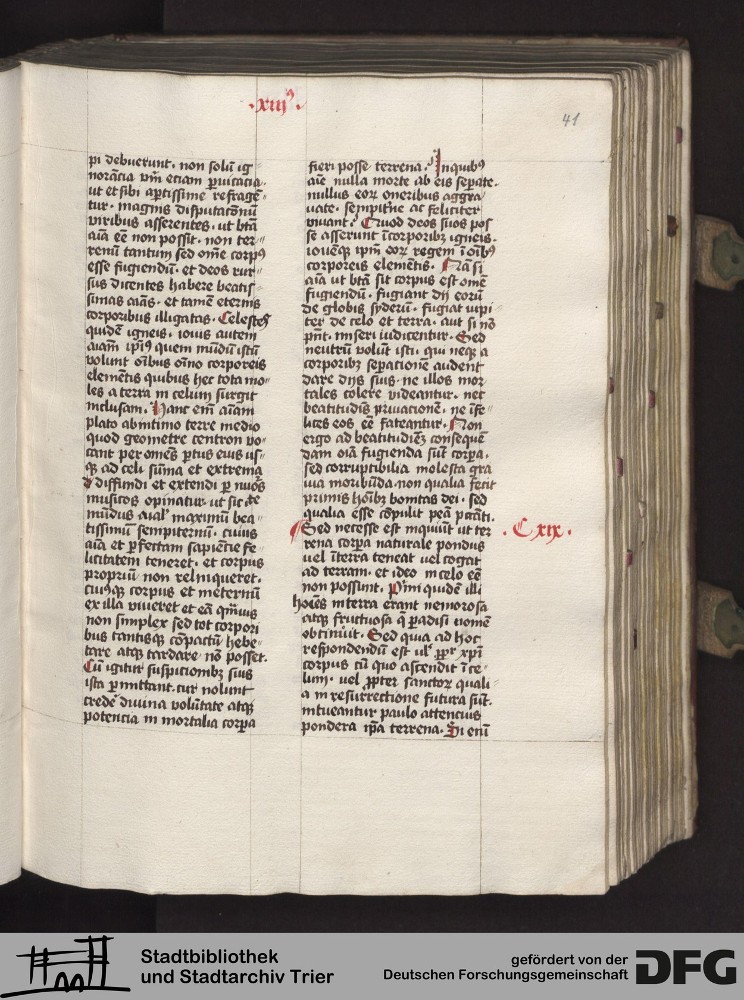 .xiii⁹.
41
pi debuerunt. non solū ig
norācia vm̄ eciam ꝑuicacia.
ut et sibi aꝑtissime refragē
tur. magnis disputatōnū
viribus asserentes. ut btā
aīa eē non possit. non ter
renū tantum sed om̄e corpꝰ
esse fugiendū. et deos rur
sus dicentes habere beatis
simas aīās. et tamē eternis
corporibus illigatas. Celestes
quidē igneis. iouis autem
aīam ipīꝰ quem mūdū istū
volunt oībus oīno corporeis
elemētis quibus hec tota mo
les a terra in celum surgit
inclusam. Hanc em̄ aīam
plato ab intimo terre medio
quod geometre centron vo
cant per omēs ꝑtus eius us
qꝫ ad celi sūma et extrema
diffundi et extendi ꝑ nūos
musicos opinatur. ut sit iste
mūdus aīal maximū bea
tissimū sempiternū. cuius
aīa et ꝑfectam sapiēcie fe
licitatem teneret. et corpus
propriū non relinqueret.
cuiꝰqꝫ corpus et ineternū
ex illa viueret et eā qm̄uis
non simplex sed tot corpori
bus tantisqꝫ cōpactū hebe
tare atqꝫ tardare nō posset.
Cū igitur suspicionibꝫ suis
ista ꝑmittant. cur nolunt
credē diuina volūtate atqꝫ
potencia in mortalia corpa
fieri posse terrena. In quibꝰ
aīe nulla morte ab eis seꝑate.
nullus eoꝝ oneribus aggra
uate. sempitne ac feliciter
viuant. Quod deos suos pos
se asserunt ī corporibꝫ igneis.
iouēqꝫ ipm̄ eoꝝ regem ī oībꝰ
corporeis elemētis. Nā si
aīa ut btā sit corpus est omē
fugiendū. fugiant dij eorū
de globis syderū. fugiat iupi
ter de celo et terra. aut si nō
pn̄t. miseri iudicentur. Sed
neutrū volūt isti. qui neqꝫ a
corporibꝫ seꝑacionē audent
dare dijs suis. ne illos mor
tales colere videantur. nec
beatitudīs priuacionē. ne īfe
lices eos eē fateantur. Non
ergo ad beatitudīeꝫ consequē
dam oīa fugienda sūt corꝑa.
sed corruptibilia molesta gra
uia moribūda. non qualia fecit
primis hoībꝫ bonitas dei. sed
qualia esse cōpulit pena pccāti.
Sed necesse est inquiūt ut ter
rena corꝑa naturale pondus
vel ī terra teneat vel cogat
ad terram. et ideo in celo eē
non possunt. Pimi quidē illi
hoīes in terra erant nemorosa
atqꝫ fructuosa q̄ paradisi nomē
obtinuit. Sed quia ad hoc
respondendū est ul' ꝓpr xpī
corpus cū quo ascendit ī ce
lum. vel ꝓpter sanctoꝝ quali
a in resurrectione futura sūt.
intueantur paulo attencius
pondera ip̄a terrena. Si enī
. C xix .
Stadtbibliothek
und Stadtarchiv Trier
gefördert von der
Deutschen Forschungsgemeinschaft
DFG